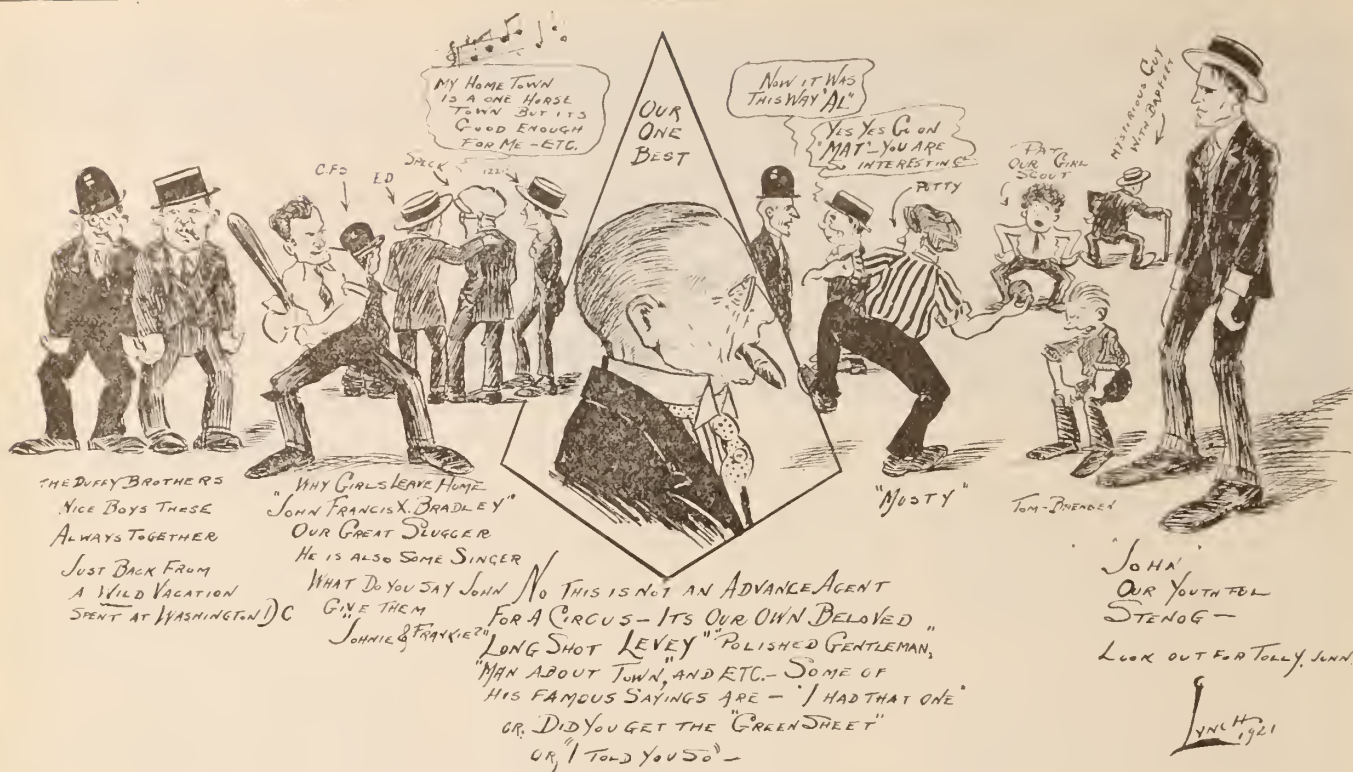 MY HOME TOWN
IS A ONE HORSE
TOWN BUT ITS
GOOD ENOUGH
FOR ME - ETC.
C.F.J
ED
SPECK
122
OUR
ONE
BEST
NOW IT WAS
THIS WAY "AL"
YES YES GO ON
"MAT" - YOU ARE
SO INTERESTING
PUTTY
"PAT"
OUR GIRL
SCOUT
MYSTERIOUS GUY
WITH
THE DUFFY BROTHERS
NICE BOYS THESE
ALWAYS TOGETHER
JUST BACK FROM
A WILD VACATION
SPENT AT WASHINGTON D C
WHY GIRLS LEAVE HOME
"JOHN FRANCIS X. BRADLEY"
OUR GREAT SLUGGER
HE IS ALSO SOME SINGER
WHAT DO YOU SAY JOHN
GIVE THEM
"JOHNIE & FRANKIE?"
NO THIS IS NOT AN ADVANCE AGENT
FOR A CIRCUS - ITS OUR OWN BELOVED
"LONG SHOT LEVEY" "POLISHED GENTLEMAN,"
"MAN ABOUT TOWN," AND ETC. - SOME OF
HIS FAMOUS SAYINGS ARE - "I HAD THAT ONE"
OR, DID YOU GET THE "GREEN SHEET"
OR, "I TOLD YOU SO" -
"MUSTY"
TOM - BRENDEN
"JOHN"
OUR YOUTHFUL
STENOG -
LOOK OUT FOR TOLLY, JOHN.
LYNCH
1921